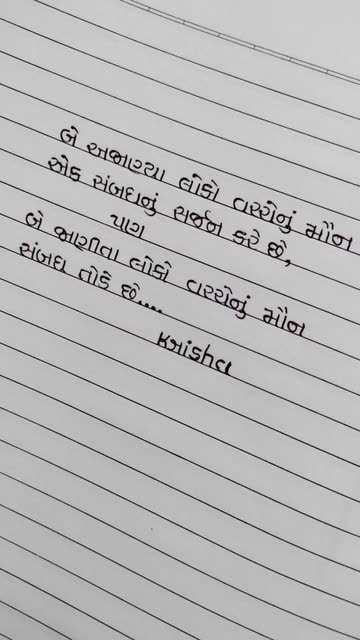 બે અજાણ્યા લોકો વચ્ચેનું મૌન
એક સંબધનું સર્જન કરે છે,
પાણ
બે જાણીતા લોકો વચ્ચેનું મૌન
સંબધ તોડે છે....